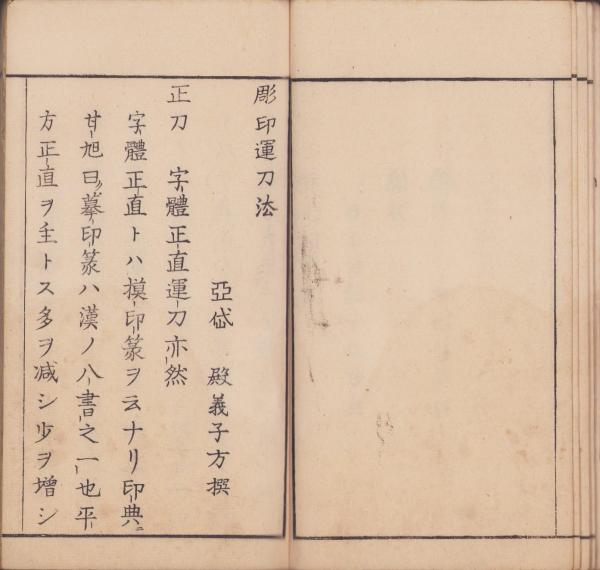 彫印運刀法
亞岱 殿義子方撰
正刀 字體正直運刀亦然
字體正直トハ摸印篆ヲ云ナリ印典ニ
甘旭曰摹印篆ハ漢ノ八書之一也平
方正直ヲ主トス多ヲ減シ少ヲ增シ